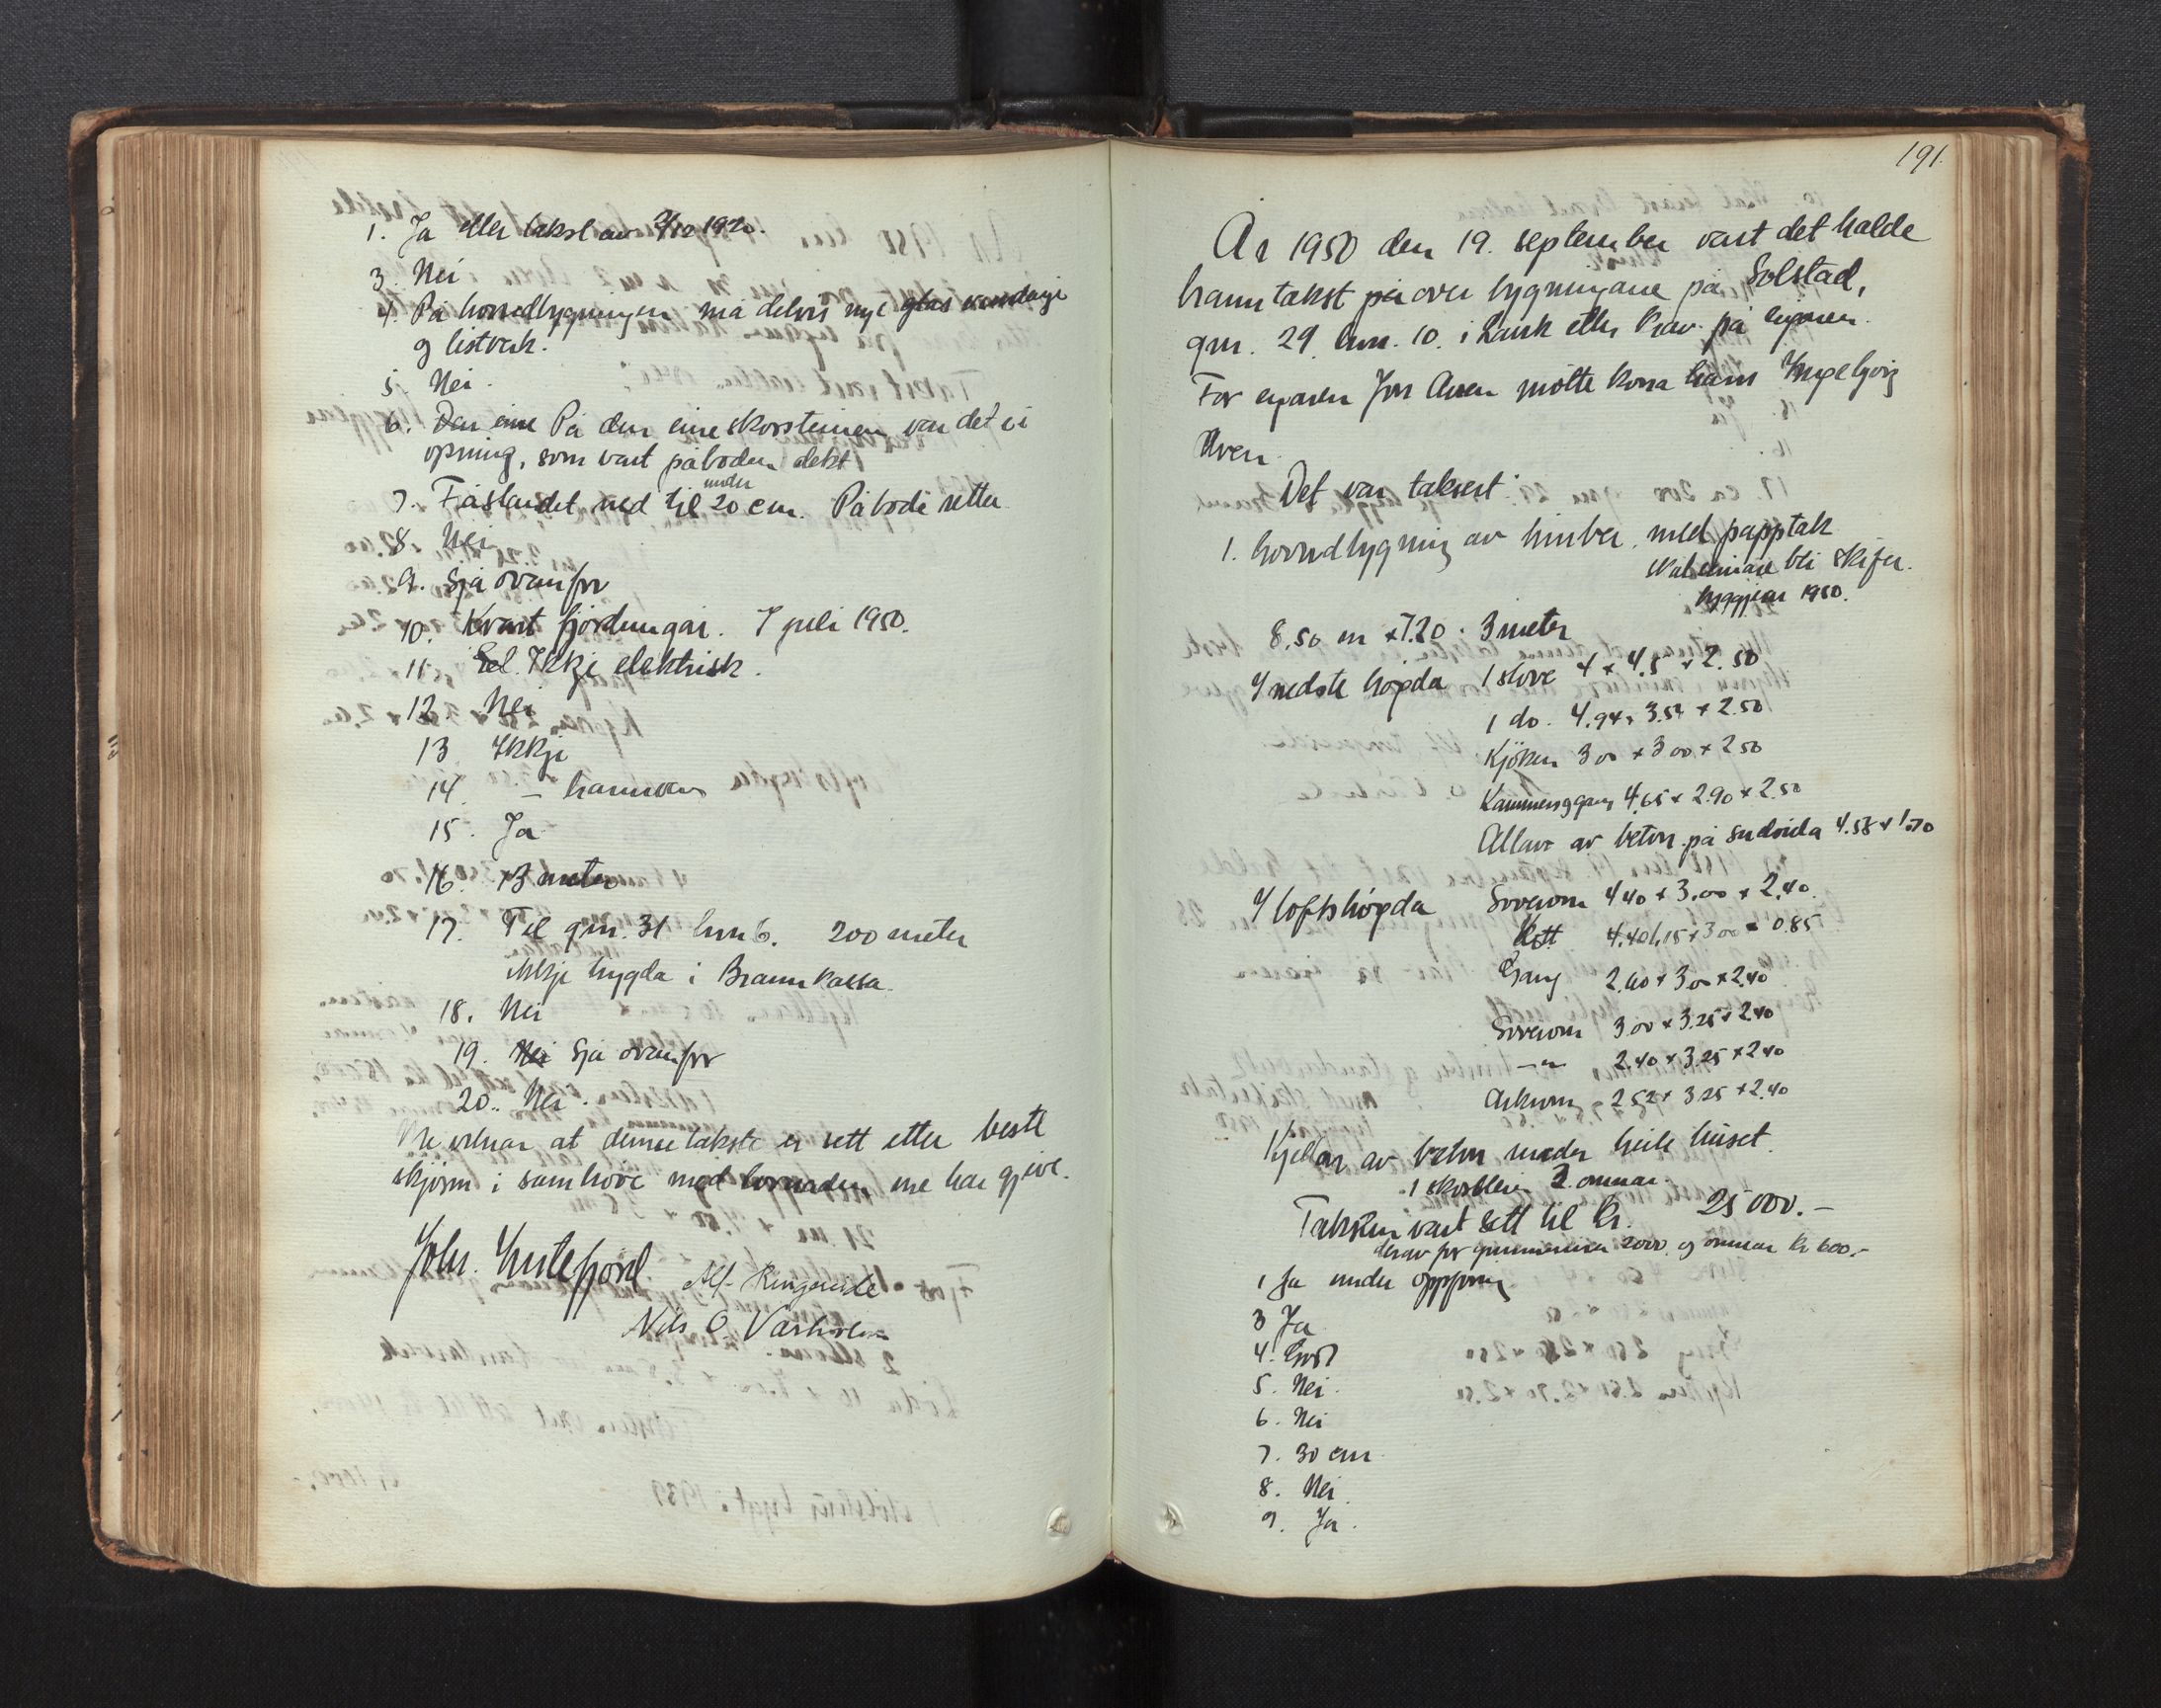 1. Ja etter takst av 2/12 1920.
3. Nei
4. På hovudbygningen må delvis nye glas vindauge
og listverk.
5. Nei.
6. Den eine På den eine skorsteinen var det ei
opning, som vart påboden dekt
under
7. Ifråstandet ned til 20 cm. Påbode retta
8. Nei
9. Sjå ovanfor
10. Kvart fjordungår. I juli 1950.
11. El. Ikkje elektrisk.
12. Nei
13 Ikkje
14. — brannvern
15. Ja
16. 13 meter
17. Til gnr. 31 bnr 6. 200 meter
Ikkje trygda i Brannkassa.
18. Nei
19. Nei Sjå ovanfor
20. Nei.
Me vitnar at denne takst er sett etter beste
skjønn i samhøve med lovnaden me har gjeve.
Johs. Instefjord Alf Ringereide
Nils O. Vårholm
191.
År 1950 den 19. september vart det halde
branntakst på over bygningane på Solstad,
gnr. 29. bnr. 10. i Lavik etter krav på eigaren.
For eigaren Jon Aven møtte kona hans Ingebjørg
Aven.
Det var taksert:
1. hovudbygning av timber, med papptak
skal seinare bli skifer.
byggjeår 1950.
8.50 m x 7.20. 3 meter
I nedste høgda 1 stove 4 x 4.5 x 2.50
1 do. 4.94 x 3.54 x 2.50
Kjøken 3 00 x 3 00 x 2 50
Kammers og gang 4.65 x 2.90 x 2.50
Altan av betong på sudsida 4.58 x 1.70
I loftshøgda Soverom 4 40 x 3.00 x 2.40.
Kott 4.40 1,15 x 3 00 x 0.85
Gang 2.60 x 3 00 x 2.40
Soverom 3.00 x 3.25 x 2.40
—"— 2.40 x 3.25 x 2 40
Arkrom 2 52 x 3.25 x 2.40
Kjellar av betong under heile huset.
1 skorstein 2. omnar
Taksten vart sett til kr. 25 000.—
derav for grunnmuren 2000 og omnar kr 600.—
1 Ja under oppføring
3 Ja
4. God
5. Nei.
6. Nei
7. 30 cm
8. Nei.
9. Ja.